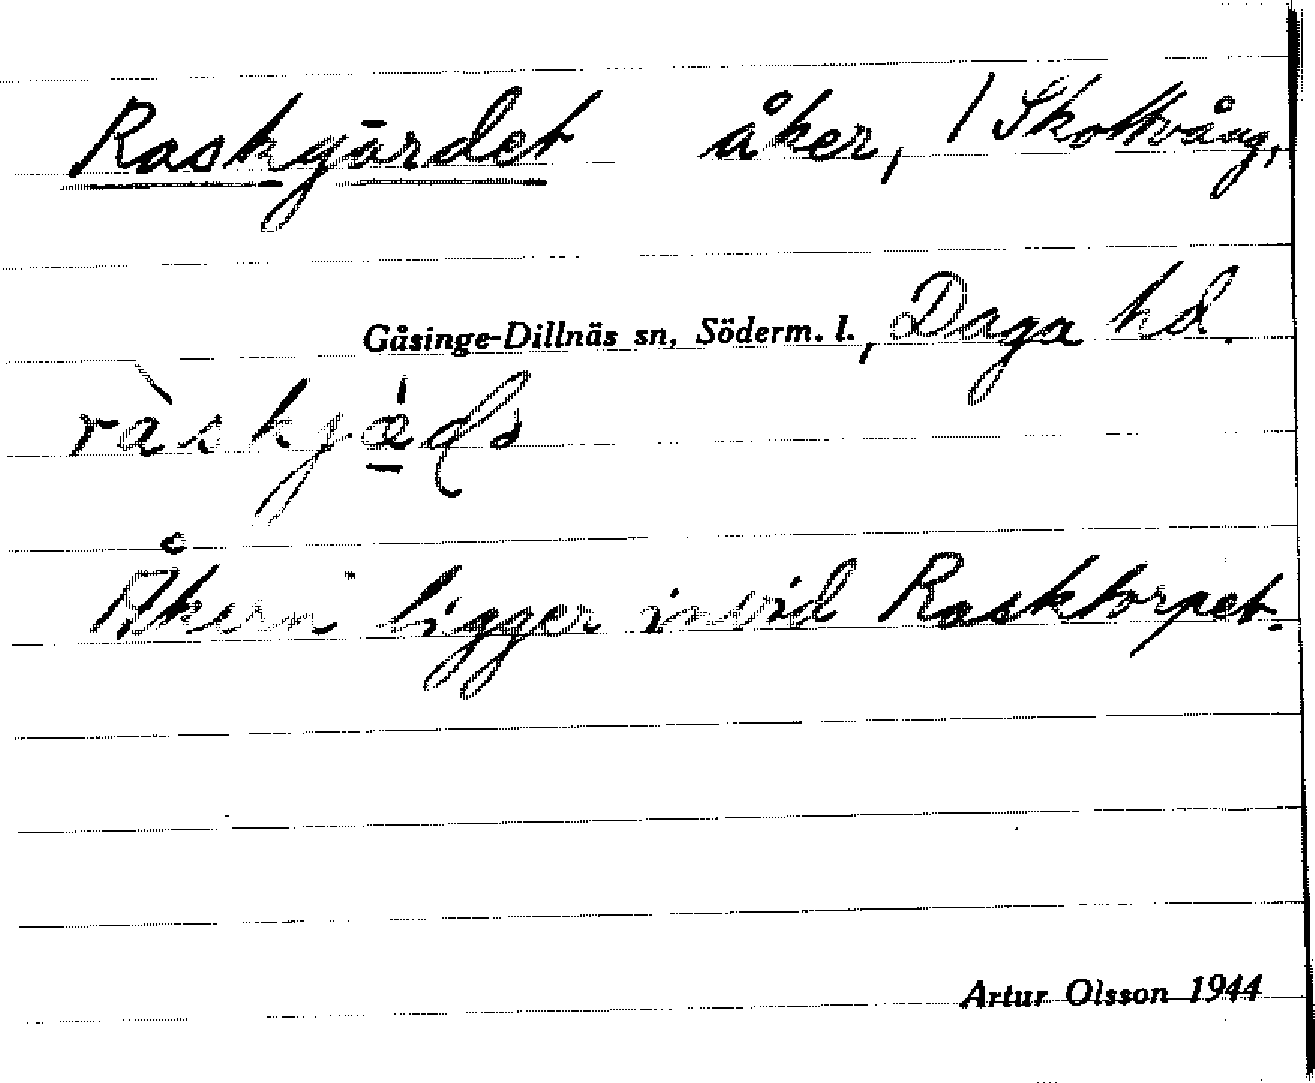 Raskgärdet åker, / Skottvång,
Gåsinge-Dillnäs sn, Söderm. l., Daga hd.
Åkern ligger invid Rasktorpet.
Artur Olsson 1944